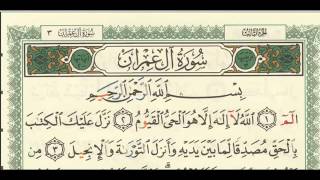 سُورَةُ آلِ عِمْرَانَ ٣ الجزء الثالث
سُورَةُ آلِ عِمْرَانَ
بِسْمِ اللَّهِ الرَّحْمَٰنِ الرَّحِيمِ
الٓمٓ ١ اللَّهُ لَا إِلَٰهَ إِلَّا هُوَ الْحَيُّ الْقَيُّومُ ٢ نَزَّلَ عَلَيْكَ الْكِتَٰبَ
بِالْحَقِّ مُصَدِّقًا لِّمَا بَيْنَ يَدَيْهِ وَأَنزَلَ التَّوْرَىٰةَ وَالْإِنجِيلَ ٣ مِن